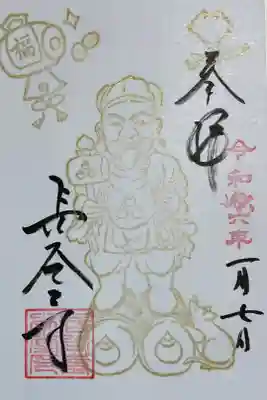 奉拝
令和六年
一月七日
福
長谷寺